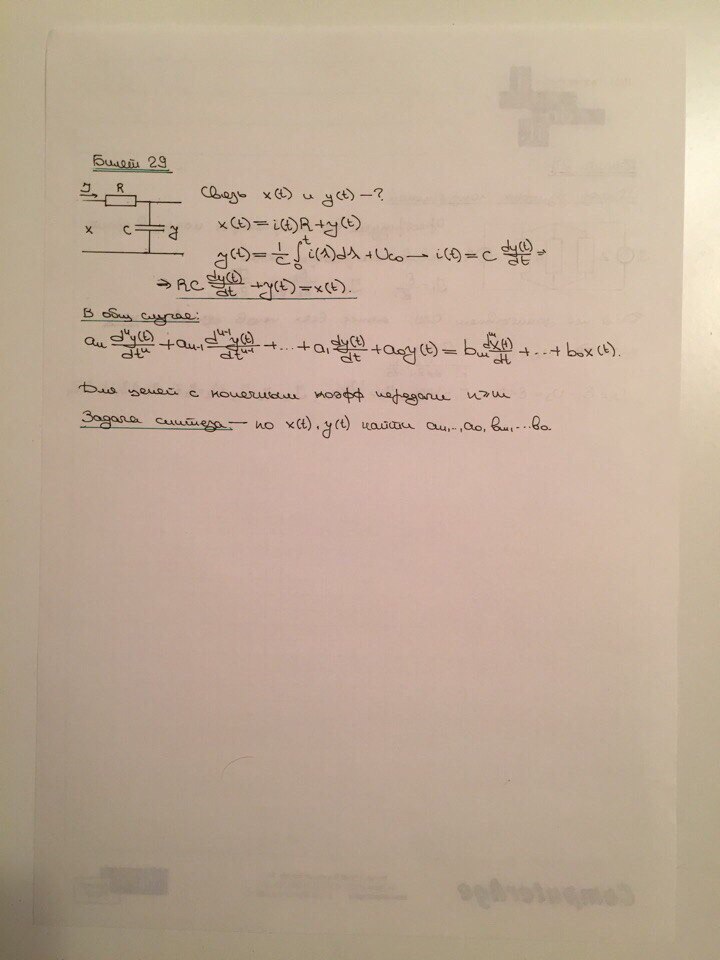 Билет 29
J R
x C y
Связь x(t) и y(t) – ?
x(t) = i(t)R + y(t)
y(t) = 1/C ∫₀ᵗ i(λ)dλ + Uc0 → i(t) = C dy(t)/dt ⇒
⇒ RC dy(t)/dt + y(t) = x(t).
В общ случае:
aₙ dⁿy(t)/dtⁿ + aₙ₋₁ dⁿ⁻¹y(t)/dtⁿ⁻¹ + ... + a₁ dy(t)/dt + a₀y(t) = bₘ dᵐx(t)/dt + ... + b₀x(t).
Для цепей с конечным коэфф передачи n≥m
Задача синтеза — по x(t), y(t) найти aₙ,..,a₀, bₘ,...b₀
ComputerAge